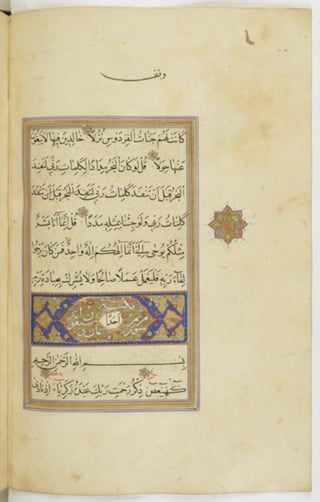 وقف
كَانَتْ لَهُمْ جَنَّاتُ الْفِرْدَوْسِ نُزُلًا خَالِدِينَ فِيهَا لَا يَبْغُونَ
عَنْهَا حِوَلًا قُلْ لَوْ كَانَ الْبَحْرُ مِدَادًا لِكَلِمَاتِ رَبِّي لَنَفِدَ
الْبَحْرُ قَبْلَ أَنْ تَنْفَدَ كَلِمَاتُ رَبِّي لَنَفِدَ الْبَحْرُ قَبْلَ أَنْ تَنْفَدَ
كَلِمَاتُ رَبِّي وَلَوْ جِئْنَا بِمِثْلِهِ مَدَدًا قُلْ إِنَّمَا أَنَا بَشَرٌ
مِثْلُكُمْ يُوحَى إِلَيَّ أَنَّمَا إِلَهُكُمْ إِلَهٌ وَاحِدٌ فَمَنْ كَانَ يَرْجُو
لِقَاءَ رَبِّهِ فَلْيَعْمَلْ عَمَلًا صَالِحًا وَلَا يُشْرِكْ بِعِبَادَةِ رَبِّهِ
أَحَدًا
بِسْمِ اللَّهِ الرَّحْمَنِ الرَّحِيمِ
كهيعص ذِكْرُ رَحْمَتِ رَبِّكَ عَبْدَهُ زَكَرِيَّا إِذْ نَادَى